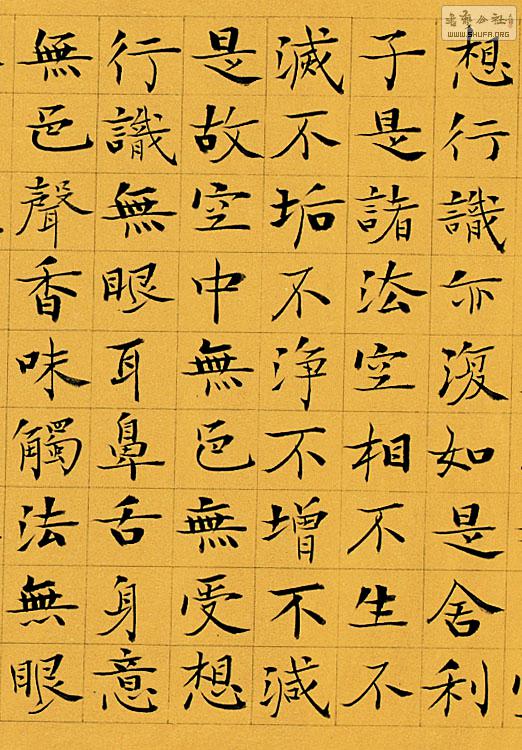 想行識亦復如是舍利
子是諸法空相不生不
滅不垢不淨不增不減
是故空中無色無受想
行識無眼耳鼻舌身意
無色聲香味觸法無眼
WWW.SHUFA.ORG